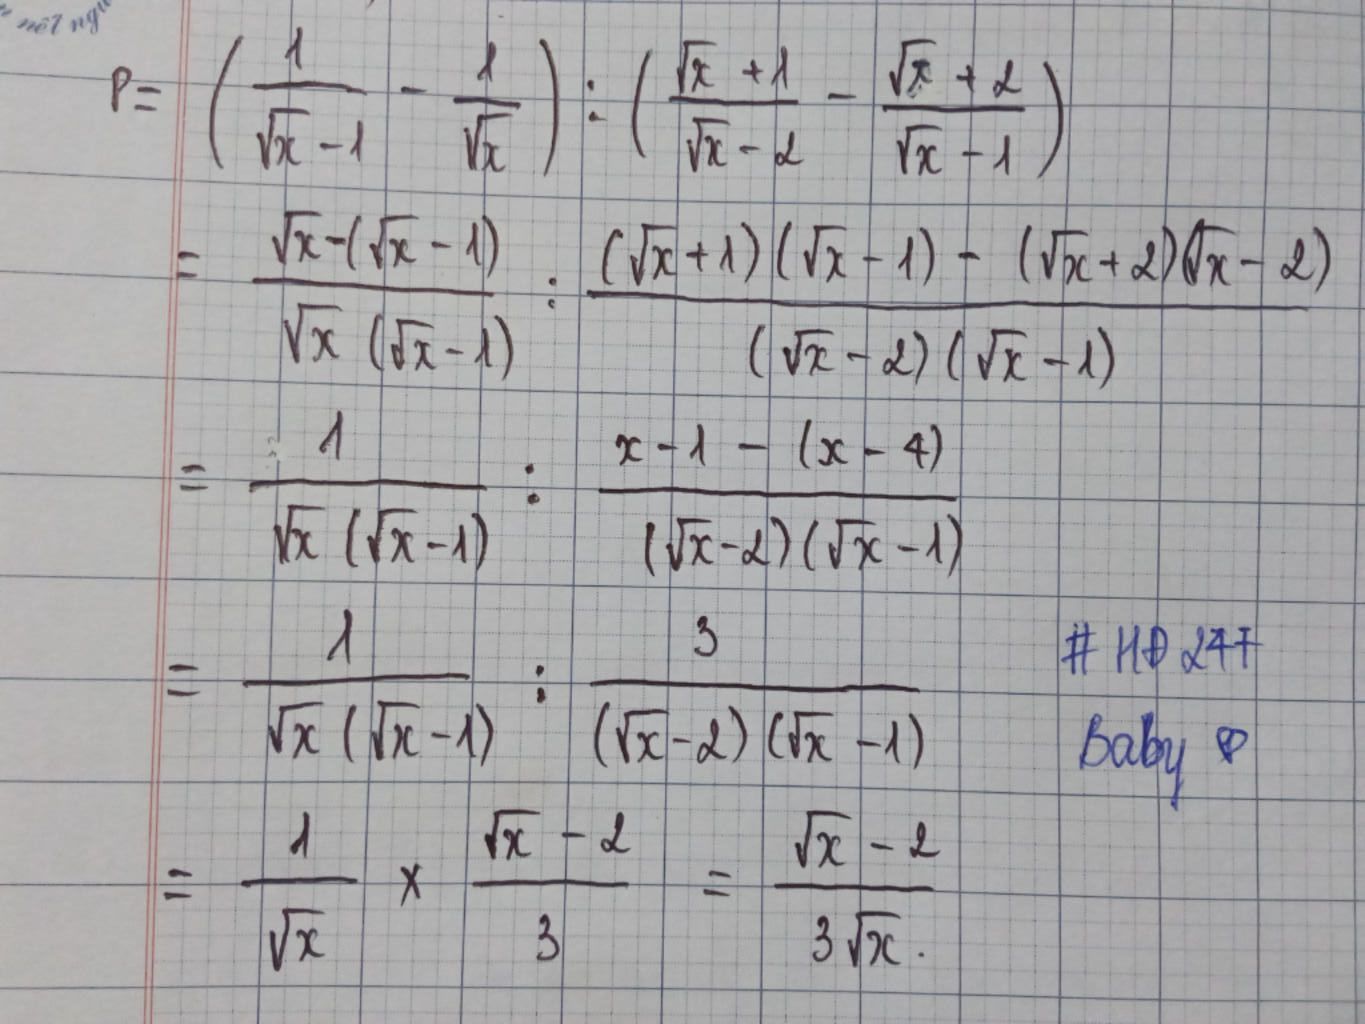 nết ngư
P = ( 1/(√x - 1) - 1/√x ) : ( (√x + 1)/(√x - 2) - (√x + 2)/(√x - 1) )
= (√x - (√x - 1))/(√x (√x - 1)) : ((√x + 1)(√x - 1) - (√x + 2)(√x - 2))/((√x - 2)(√x - 1))
= 1/(√x (√x - 1)) : (x - 1 - (x - 4))/((√x - 2)(√x - 1))
= 1/(√x (√x - 1)) : 3/((√x - 2)(√x - 1))
# HD 247
Baby
= 1/√x × (√x - 2)/3 = (√x - 2)/(3√x).